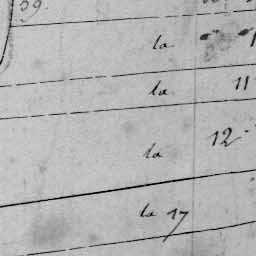 39.
la
la 11
la 12
la 17